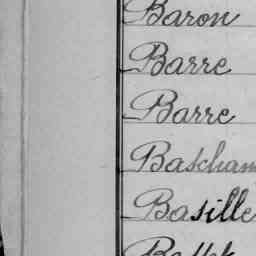 Baron
Barre
Barre
Bascham
Basille